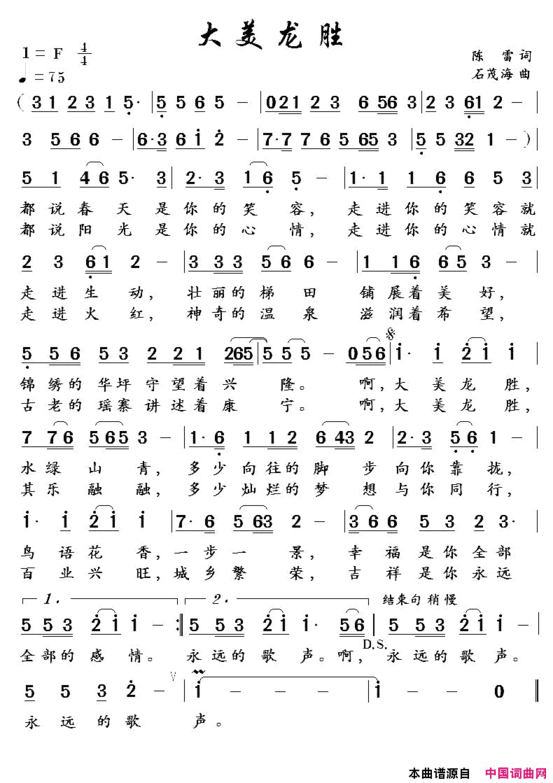 大美龙胜
1=F 4/4
♩=75
陈 雷 词
石茂海 曲
(3 1 2 3 1 5· | 5 5 6 5 - | 0 2 1 2 3 6 5 6 3 | 2 3 6 1 2 -
3 5 6 6 - | 6·3 6 i 2 - | 7·7 7 6 5 6 5 3 | 5 5 3 2 1 -)
5 1 4 6 5· 3 | 2· 3 1 6 5 - | 1· 1 1 6 6 5 3
都说春天是你的笑容，走进你的笑容就
都说阳光是你的心情，走进你的心情就
2 3 6 1 2 - | 3 3 3 5 6 6 - | 1 1 6 6 5 3 -
走进生动，壮丽的梯田铺展着美好，
走进火红，神奇的温泉滋润着希望，
5 5 6 5 3 2 2 1 2 6 5 | 5 5 5 - 0 5 6 | i· i 2 i i -
锦绣的华坪守望着兴隆。啊，大美龙胜，
古老的瑶寨讲述着康宁。啊，大美龙胜，
7 7 6 5 6 5 3 - | 1· 6 1 1 2 6 4 3 2 | 2· 3 5 6 1 -
水绿山青，多少向往的脚步向你靠拢，
其乐融融，多少灿烂的梦想与你同行，
i· i 2 i i - | 7· 6 5 6 3 2 - | 3 6 6 5 5 3 2 3
鸟语花香，一步一景，幸福是你全部
百业兴旺，城乡繁荣，吉祥是你永远
1. 2. 结束句 稍慢
5 5 3 2 i i - :| 5 5 3 2 i i· 5 6 | 5 5 3 2 i i -
D.S.
全部的感情。永远的歌声。啊，永远的歌声。
5 5 3 2 - | i - - - | i - 0 0 ‖
永远的歌声。
本曲谱源自 中国词曲网